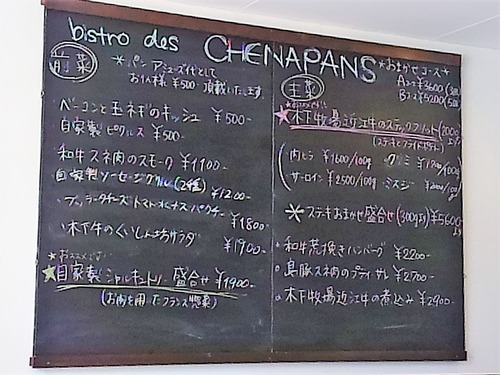 bistro des CHENAPANS
前菜
*パン アミューズ代として
お1人様 ¥500 頂戴いたします。
ベーコンと玉ネギのキッシュ ¥500-
自家製ピクルス ¥500-
和牛スネ肉のスモーク ¥1100-
自家製ソーセージグリル(2種) ¥1200-
ブッラータチーズ トマト パクチー ¥1800-
木下牛のくいしんぼサラダ ¥1900-
おススメです!
★自家製シャルキュトリー盛合せ ¥1900-
(お肉を用いたフランス惣菜)
*おまかせコース*
Aコース ¥3600
Bコース ¥5200
主菜
★木下牧場近江牛のステックフリット(200g)
(ステーキとフライドポテト)
内ヒラ ¥1600/100g クリミ
サーロイン ¥2500/100g ミスジ
*ステーキおまかせ盛合せ(300g) ¥5600
和牛荒挽きハンバーグ ¥2200-
島豚スネ肉のブレイザレ ¥2700-
木下牧場近江牛の煮込み ¥2900-